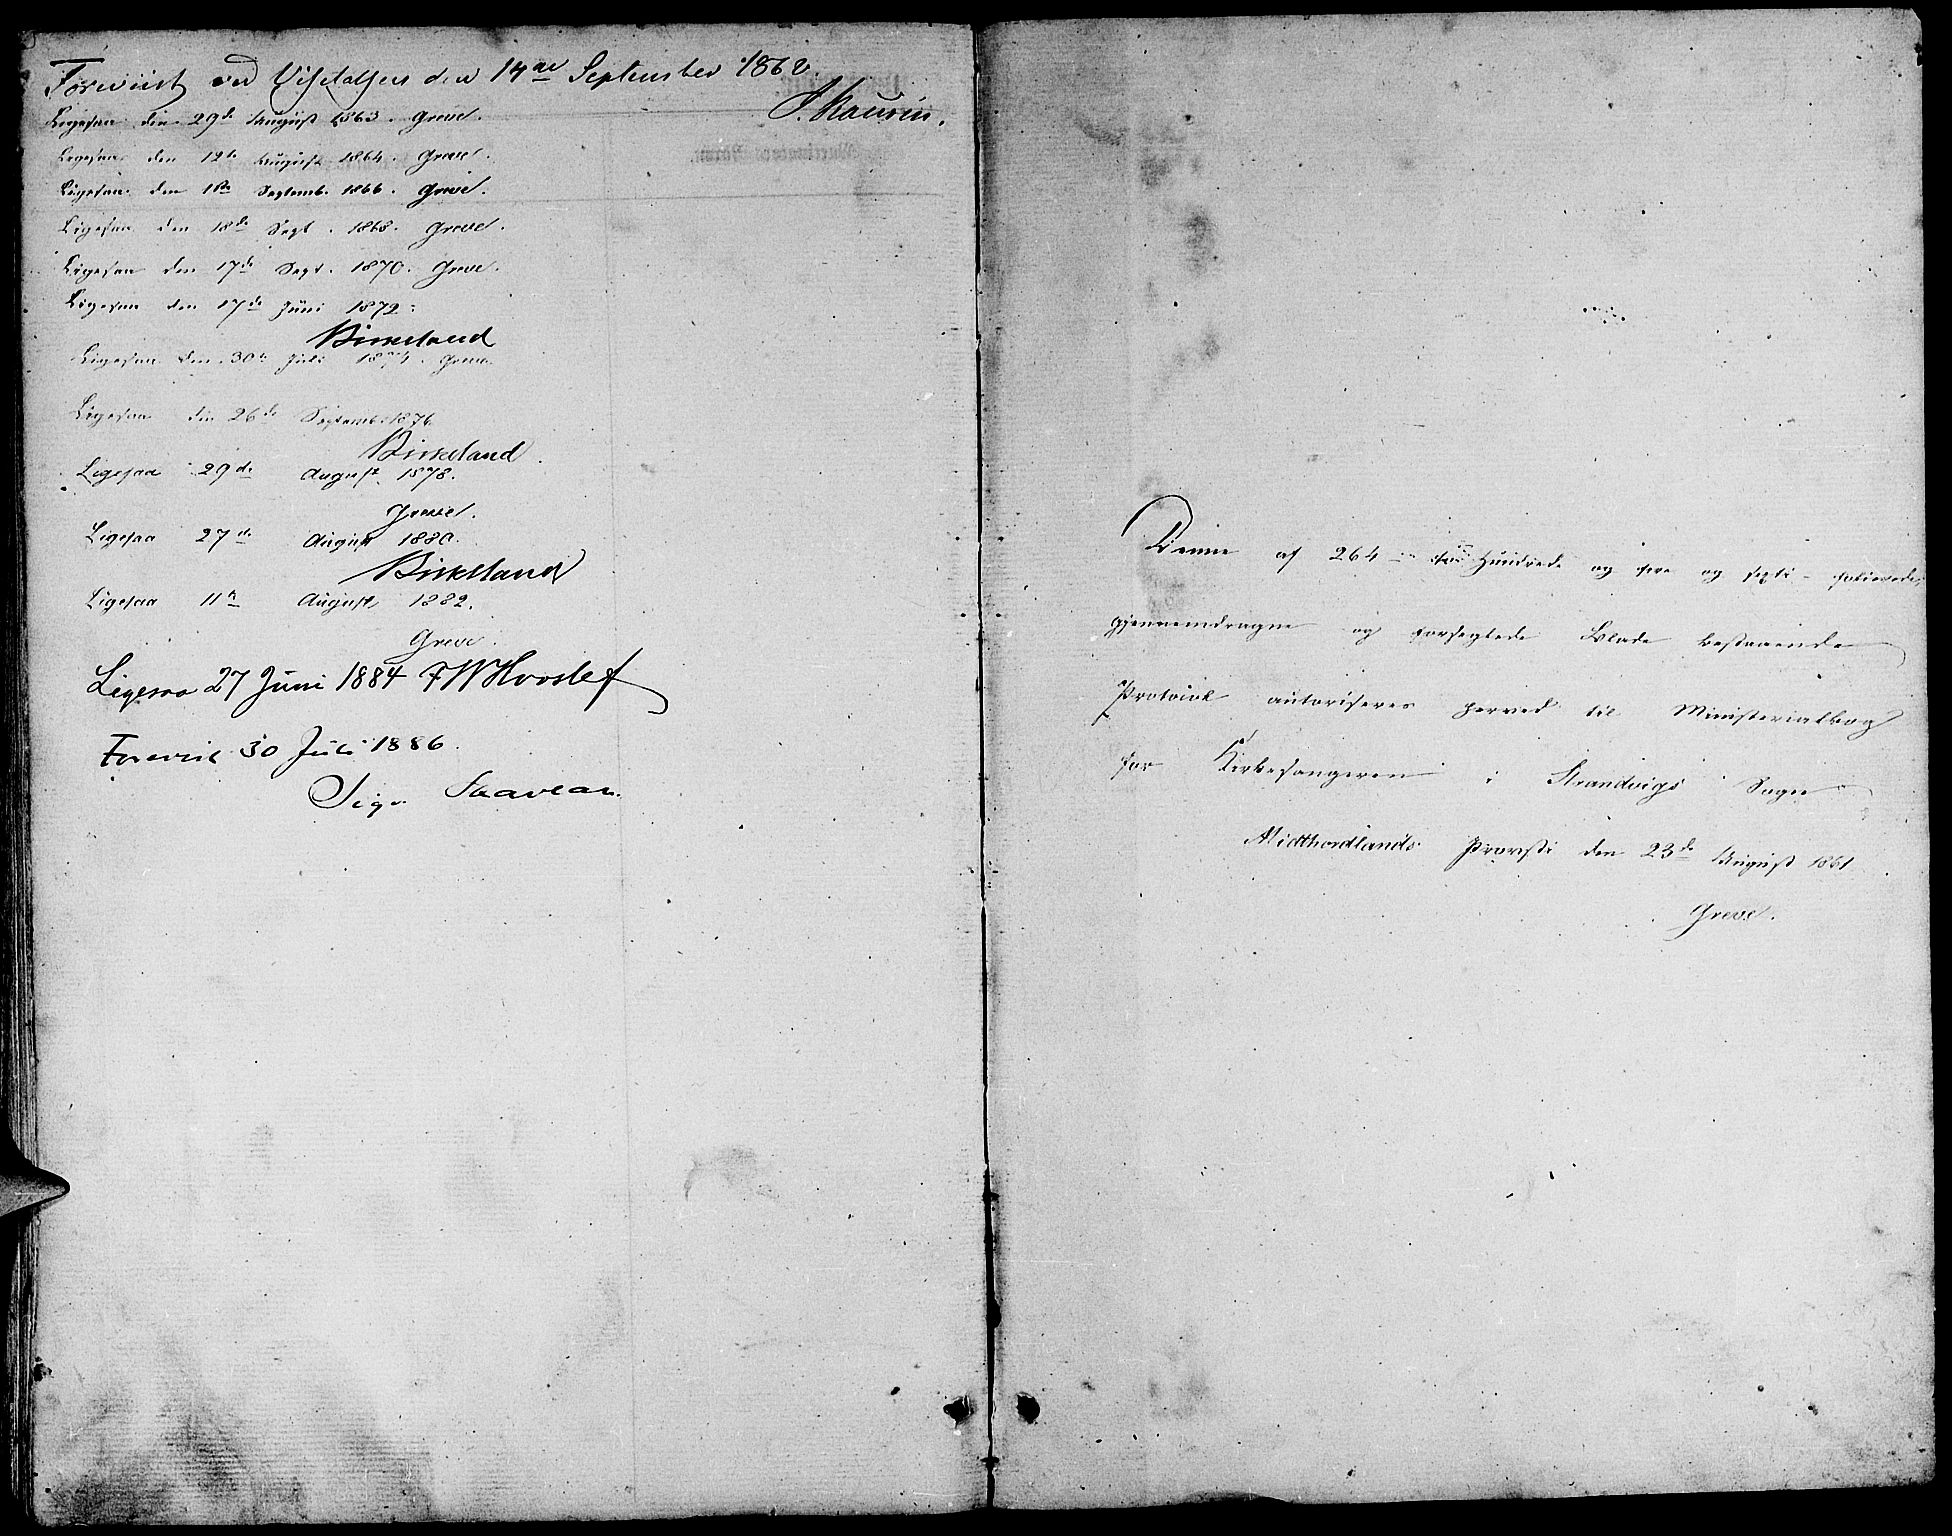 Foreviist ved Visitatsen den 14de September 1862
J. Kaurin.
Ligesaa den 29de August 1863. Greve.
Ligesaa den 12te August 1864. Greve.
Ligesaa den 1ste Septemb. 1866. Greve.
Ligesaa den 18de Sept. 1868. Greve.
Ligesaa den 17de Sept. 1870. Greve.
Ligesaa den 17de Juni 1872.
Birkeland
Ligesaa den 30te Juli 1874. Greve.
Ligesaa den 26de Septemb. 1876.
Birkeland.
Ligesaa 29de August 1878.
Greve.
Ligesaa 27de August 1880.
Birkeland
Ligesaa 11te August 1882.
Greve.
Ligesaa 27 Juni 1884 F W Hvoslef
Forevist 30 Juli 1886.
Denne af 264 - to Hundrede og fire og sexti - folierede,
gjennemdragne og forseglede Blade bestaaende
Protocol autoriseres herved til Ministerialbog
for Kirkesangeren i Strandvigs Sogn.
Midthordlands Provsti den 23de August 1861
Greve.